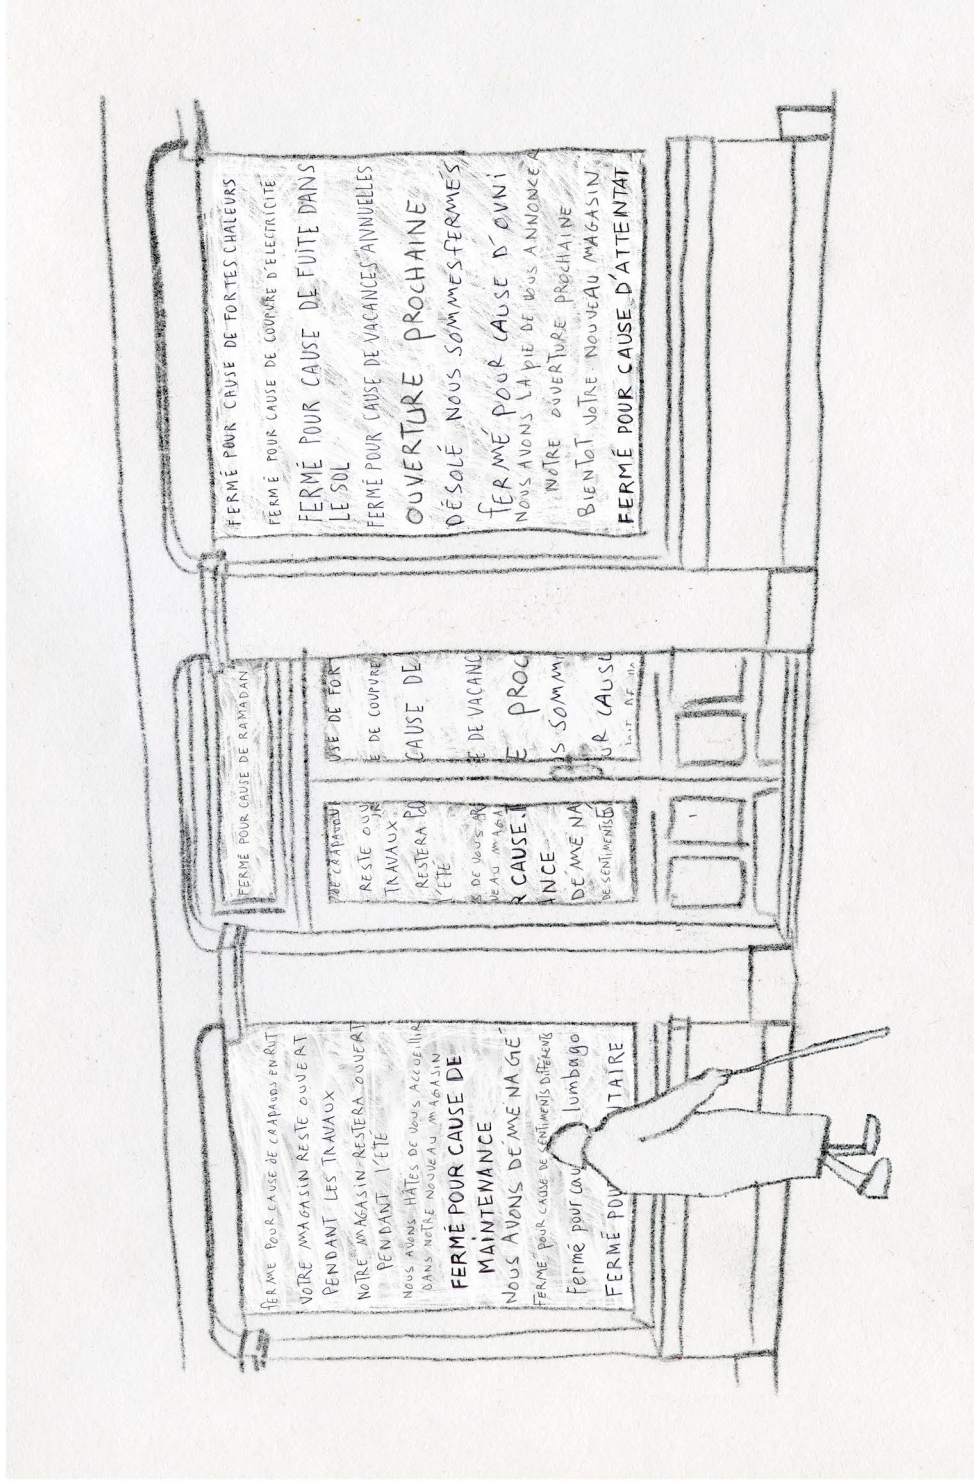 FERMÉ POUR CAUSE DE CRAPAUDS EN RUT
VOTRE MAGASIN RESTE OUVERT
PENDANT LES TRAVAUX
NOTRE MAGASIN RESTERA OUVERT
PENDANT l'ÉTÉ
NOUS AVONS HÂTES DE VOUS ACCUEILLIR
DANS NOTRE NOUVEAU MAGASIN
FERMÉ POUR CAUSE DE
MAINTENANCE
NOUS AVONS DÉMÉNAGÉ
FERMÉ POUR CAUSE DE SENTIMENTS DIFFÉRENTS
Fermé pour cau lumbago
FERMÉ POU TAIRE
FERMÉ POUR CAUSE DE RAMADAN
DE CRAPAUD
RESTE OUV
TRAVAUX
RESTERA PO
l'ÉTÉ
DE VOUS
EAU MAGA
R CAUSE
ANCE
DÉMÉNA
DE SENTIMENTS
USE DE FOR
E DE COUPURE
CAUSE DE
E DE VACANC
E PROC
S SOMM
UR CAUSE
FERMÉ POUR CAUSE DE FORTES CHALEURS
FERMÉ POUR CAUSE DE COUPURE D'ELECTRICITÉ
FERMÉ POUR CAUSE DE FUITE DANS
LE SOL
FERMÉ POUR CAUSE DE VACANCES ANNUELLES
OUVERTURE PROCHAINE
DÉSOLÉ NOUS SOMMES FERMÉS
FERMÉ POUR CAUSE D'OVNI
NOUS AVONS LA PIE DE VOUS ANNONCER
NOTRE OUVERTURE PROCHAINE
BIENTOT VOTRE NOUVEAU MAGASIN
FERMÉ POUR CAUSE D'ATTEINTAT